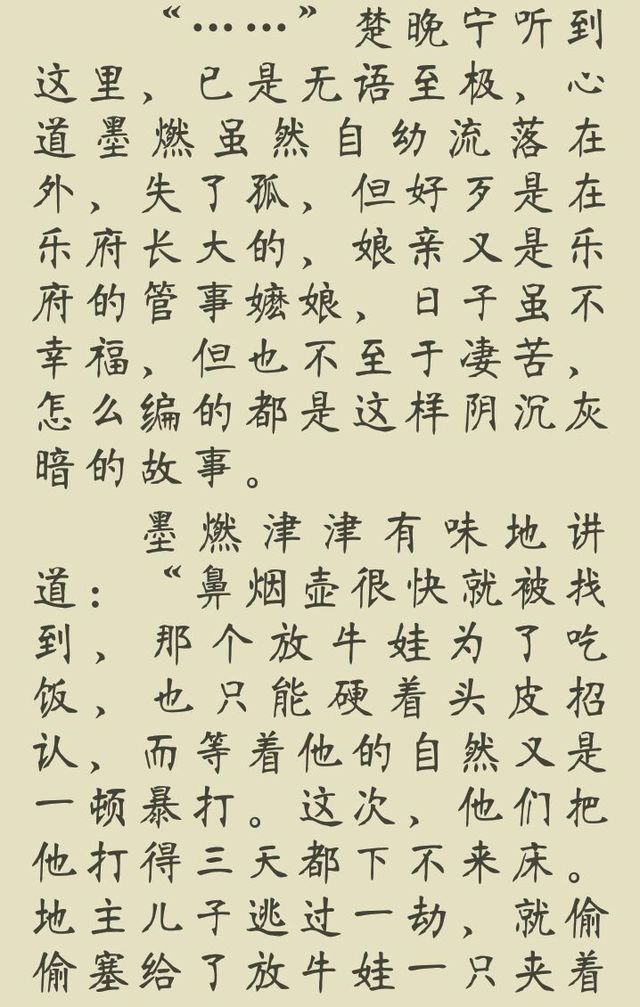 “……”楚晚宁听到
这里，已是无语至极，心
道墨燃虽然自幼流落在
外，失了孤，但好歹是在
乐府长大的，娘亲又是乐
府的管事嬷娘，日子虽不
幸福，但也不至于凄苦，
怎么编的都是这样阴沉灰
暗的故事。
墨燃津津有味地讲
道：“鼻烟壶很快就被找
到，那个放牛娃为了吃
饭，也只能硬着头皮招
认，而等着他的自然又是
一顿暴打。这次，他们把
他打得三天都下不来床。
地主儿子逃过一劫，就偷
偷塞给了放牛娃一只夹着